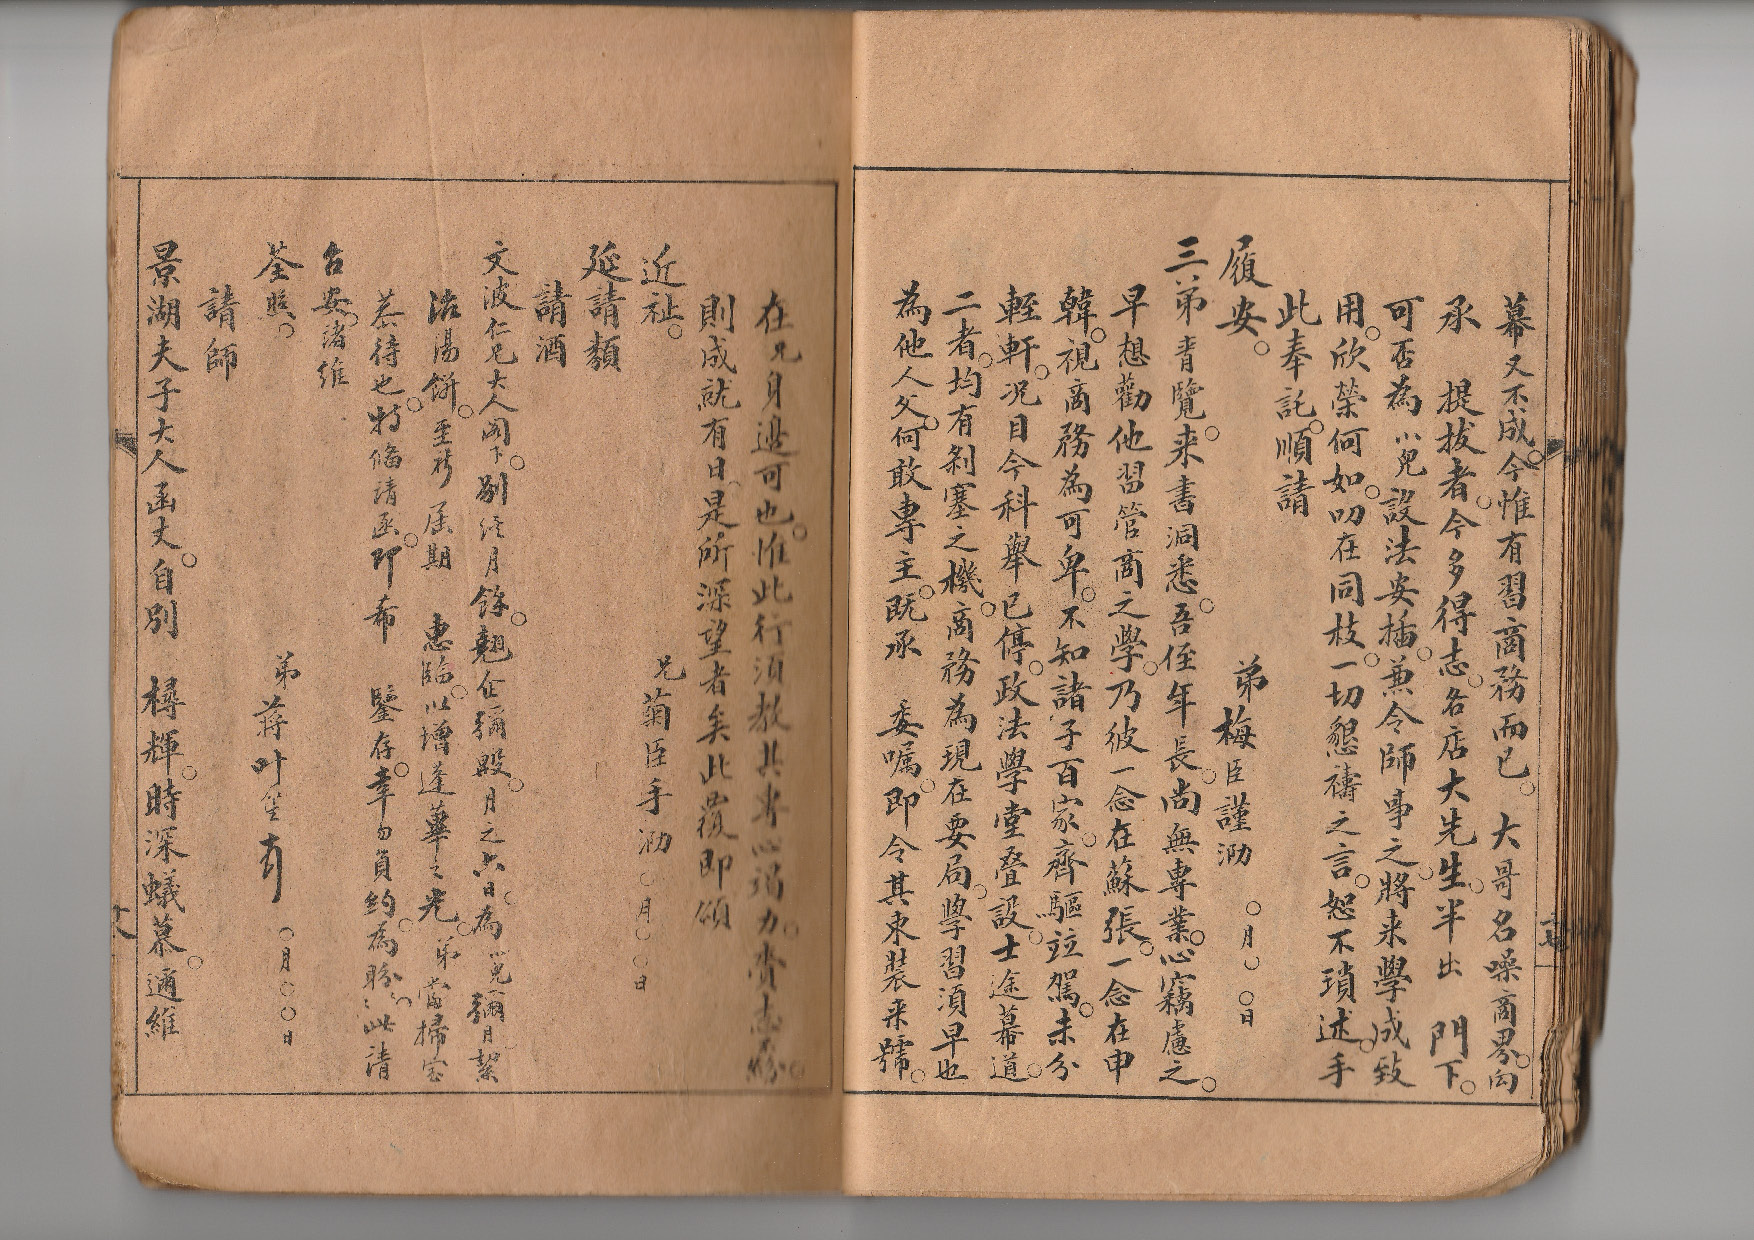 幕又不成。今惟有習商務而已。大哥名噪商界。向
承　提拔者。今多得志。名店大先生。半出　門下。
可否為小兒設法安插。兼令師事之。將来學成致
用。欣榮何如。叨在同枝。一切懇禱之言。恕不瑣述。手
此奉託。順請
履安。
弟梅臣謹泐　○月○○日
三弟青覽。来書洞悉。吾侄年長。尚無專業。心竊慮之。
早想勸他習管商之學。乃彼一念在蘇張。一念在申
韓。視商務為可卑。不知諸子百家。齊驅竝駕。未分
輊軒。况目今科舉已停。政法學堂叠設。士途幕道。
二者。均有剝塞之機。商務為現在要局。學習須早也
為他人父。何敢專主。既承　委嘱。即令其束裝来號。
在兄身邊可也。惟此行須教其專心竭力。賫志不紛。
則成就有日。是所深望者矣此覆即頌
近祉。
兄菊臣手泐　○月○○日
延請類
請酒
文波仁兄大人閣下。別经月餘。翹企彌殷。月之六日。為小兒彌月絜
湯餅。至祈届期　惠臨。以增蓬蓽之光。弟當掃室
恭待也。特脩請函。即希　鑒存。幸勿負約。為盼。此請
台安。諸維
荃照。
弟蔣叶笙　○月○○日
請師
景湖夫子大人函丈。自別　樽輝。時深蟻慕。適維